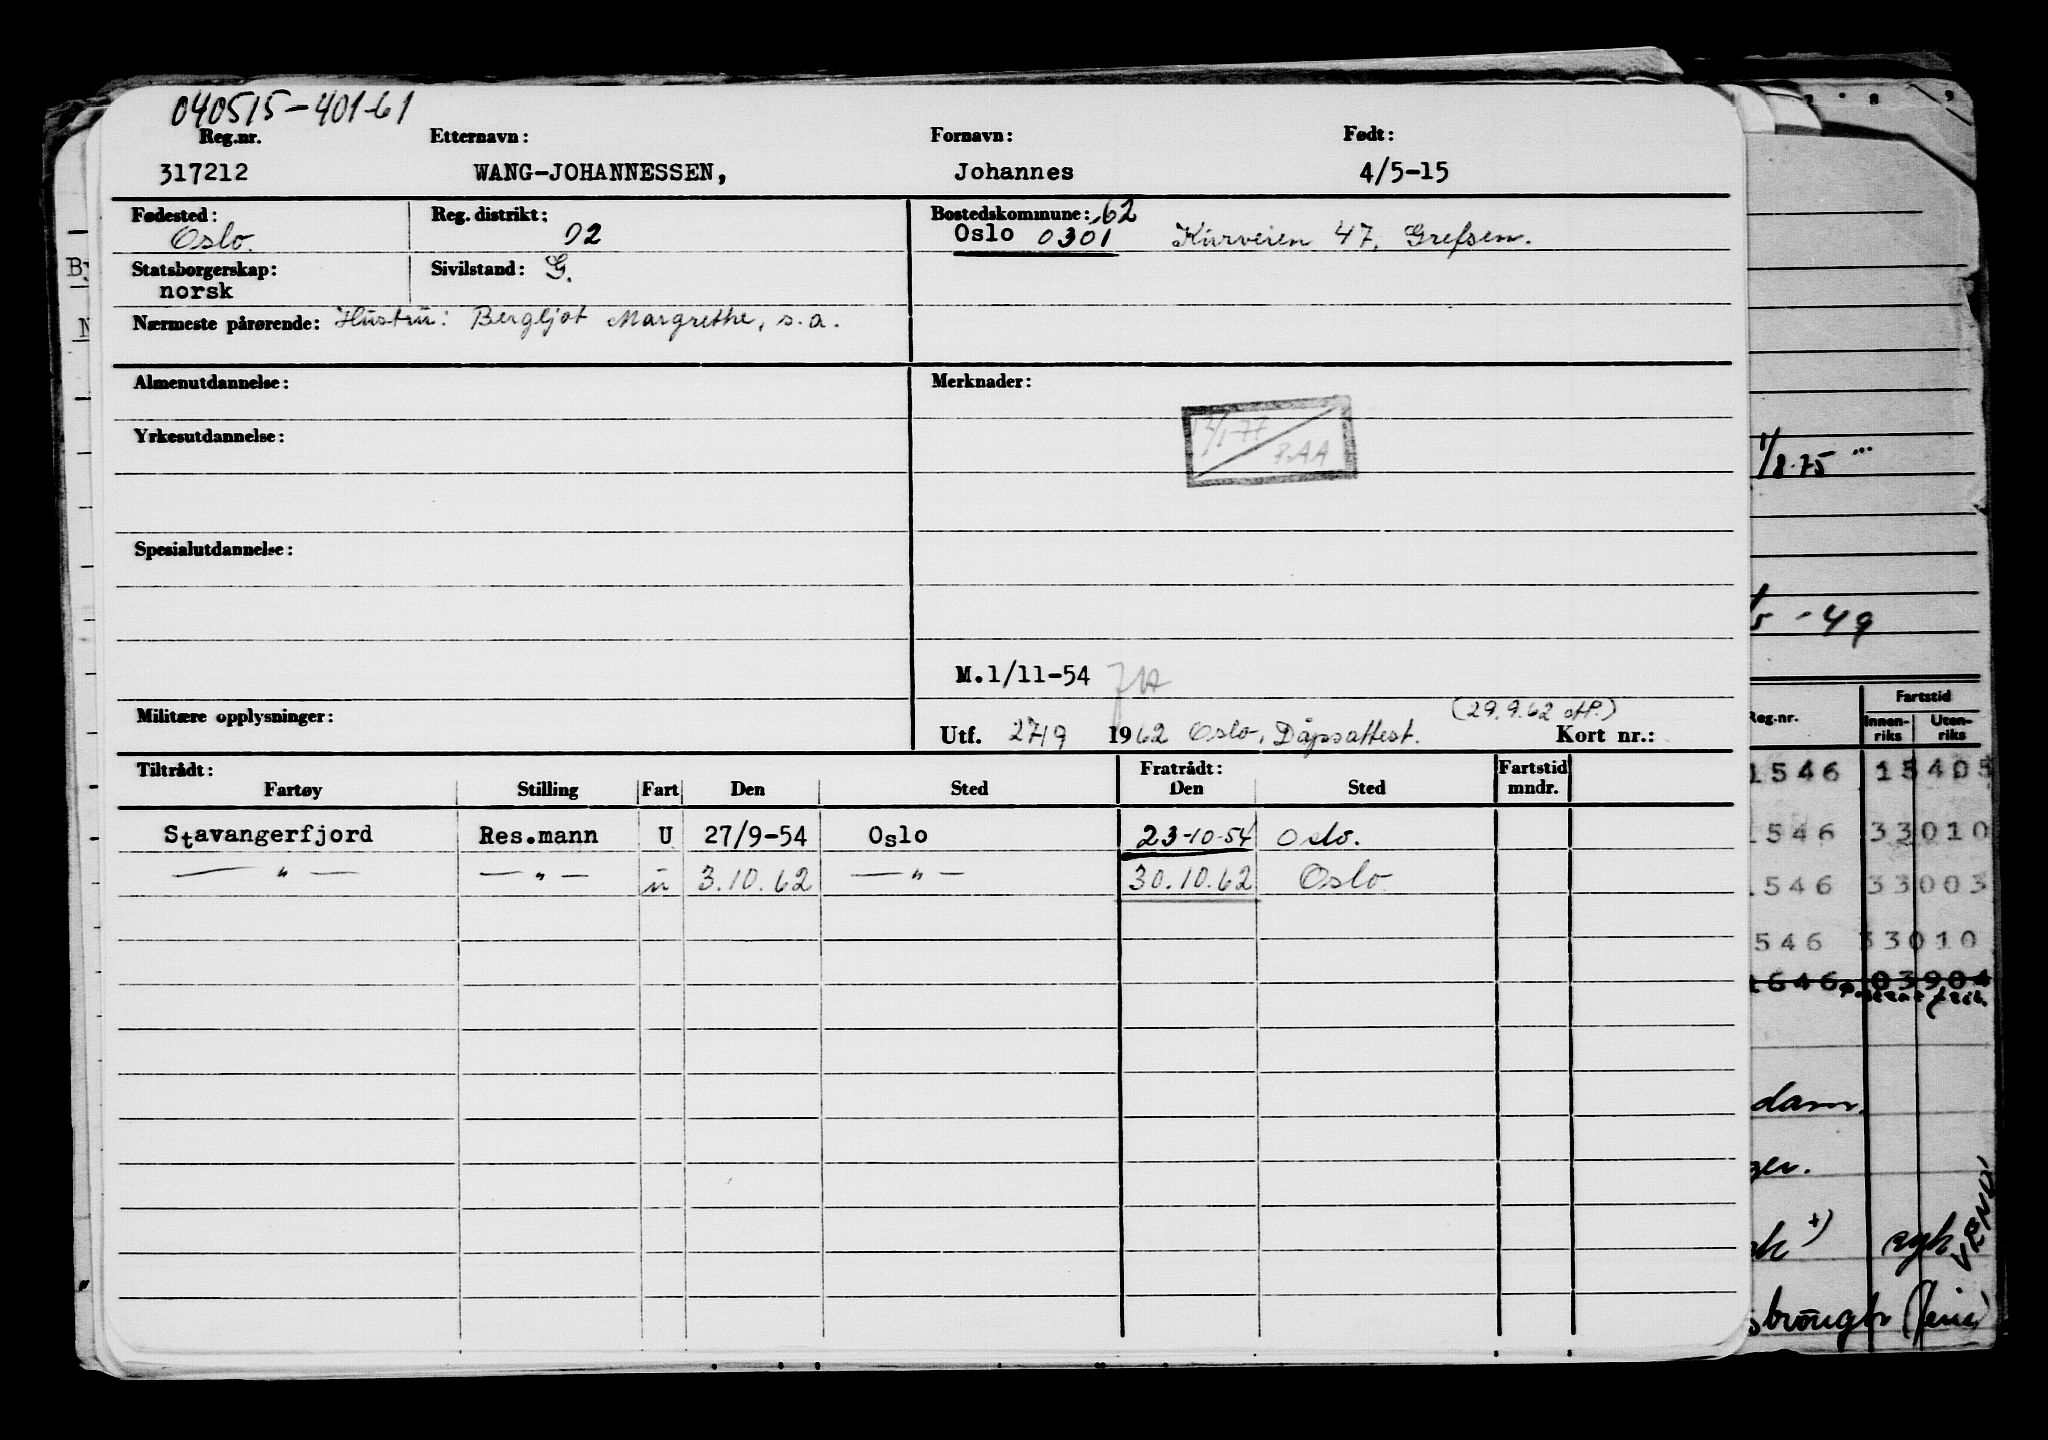 040515-401-61
Reg.nr. Etternavn: Fornavn: Født:
317212 WANG-JOHANNESSEN, Johannes 4/5-15
Fødested: Reg. distrikt: Bostedskommune: 62
Oslo. 02 Oslo 0301 Kurveien 47, Grefsen.
Statsborgerskap: Sivilstand: G.
norsk
Nærmeste pårørende: Hustru: Bergljot Margrethe, s.a.
Almenutdannelse: Merknader:
Yrkesutdannelse:
Spesialutdannelse:
M.1/11-54
Militære opplysninger: (29.9.62
Utf. 27/9 1962 Oslo, Dåpsattest. Kort nr.:
Tiltrådt: Fratrådt: Fartstid
Fartøy Stilling Fart Den Sted Den Sted mndr.
Stavangerfjord Res.mann U 27/9-54 Oslo 23-10-54 Oslo.
— " — — " — u 3.10.62 — " — 30.10.62 Oslo
1/8-75
-49
Fartstid
Reg.nr. Innen-riks Uten-riks
1546 15405
1546 33010
1546 33003
546 33010
1646 03904
dam.
ger.
VEND